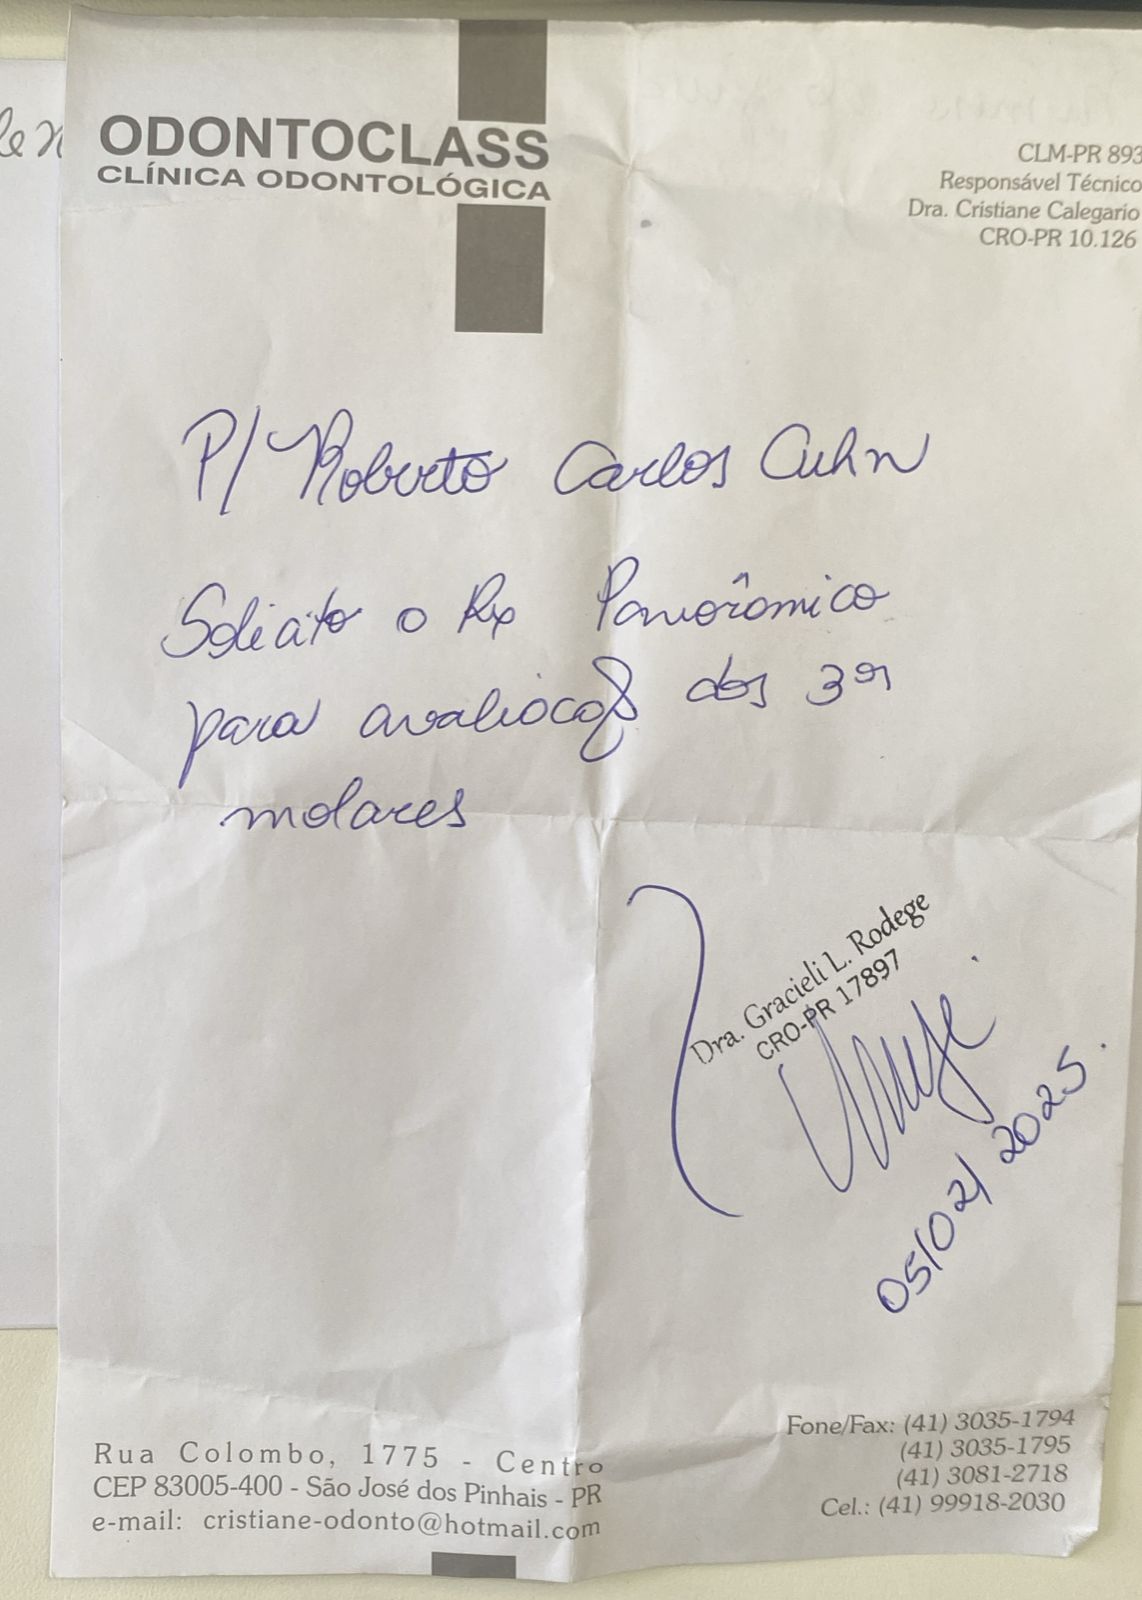 ODONTOCLASS
CLÍNICA ODONTOLÓGICA
CLM-PR 893
Responsável Técnico
Dra. Cristiane Calegario
CRO-PR 10.126
P/ Roberto Carlos Cuhn
Solicito o Rx Panorâmico
para avaliação dos 3os
molares
Dra. Gracieli L. Rodege
CRO-PR 17897
05/02/2025.
Rua Colombo, 1775 - Centro
CEP 83005-400 - São José dos Pinhais - PR
e-mail: cristiane-odonto@hotmail.com
Fone/Fax: (41) 3035-1794
(41) 3035-1795
(41) 3081-2718
Cel.: (41) 99918-2030